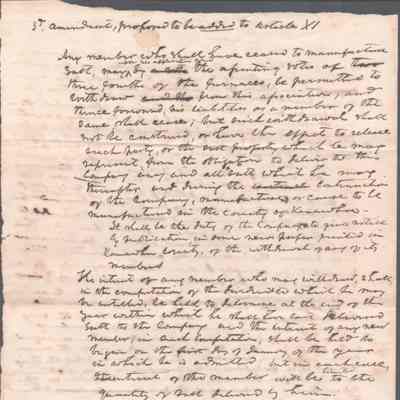 3d. amendment, proposed to be added to Article XI
Any member who shall have ceased to manufacture
Salt, may, by the assenting votes of
three fourths of the furnaces, be permitted to
withdraw from this association, and
thence forward, his liabilities as a member of the
same shall cease; but such withdrawal shall
not be construed, or have the effect to release
such party, or the property which he may
represent from the obligation to deliver to this
Company any and all Salt which he may
thereafter and during the continuation
of the Company, manufacture, or cause to be
manufactured in the County of Kanawha.
It shall be the duty of the Company to give notice
by publication in some news paper printed in
Kanawha County, of the withdrawal of any of its
members
The interest of any member who may withdraw, shall
in the computation of the dividends to which he may
be entitled, be held to determine at the end of the
year within which he shall have last delivered
Salt to the Company and the interest of any new
member, in such computation, shall be held to
begin on the first day of January of the year
in which he is admitted but in each case,
the interest of the member will be to the
quantity of Salt delivered by him.